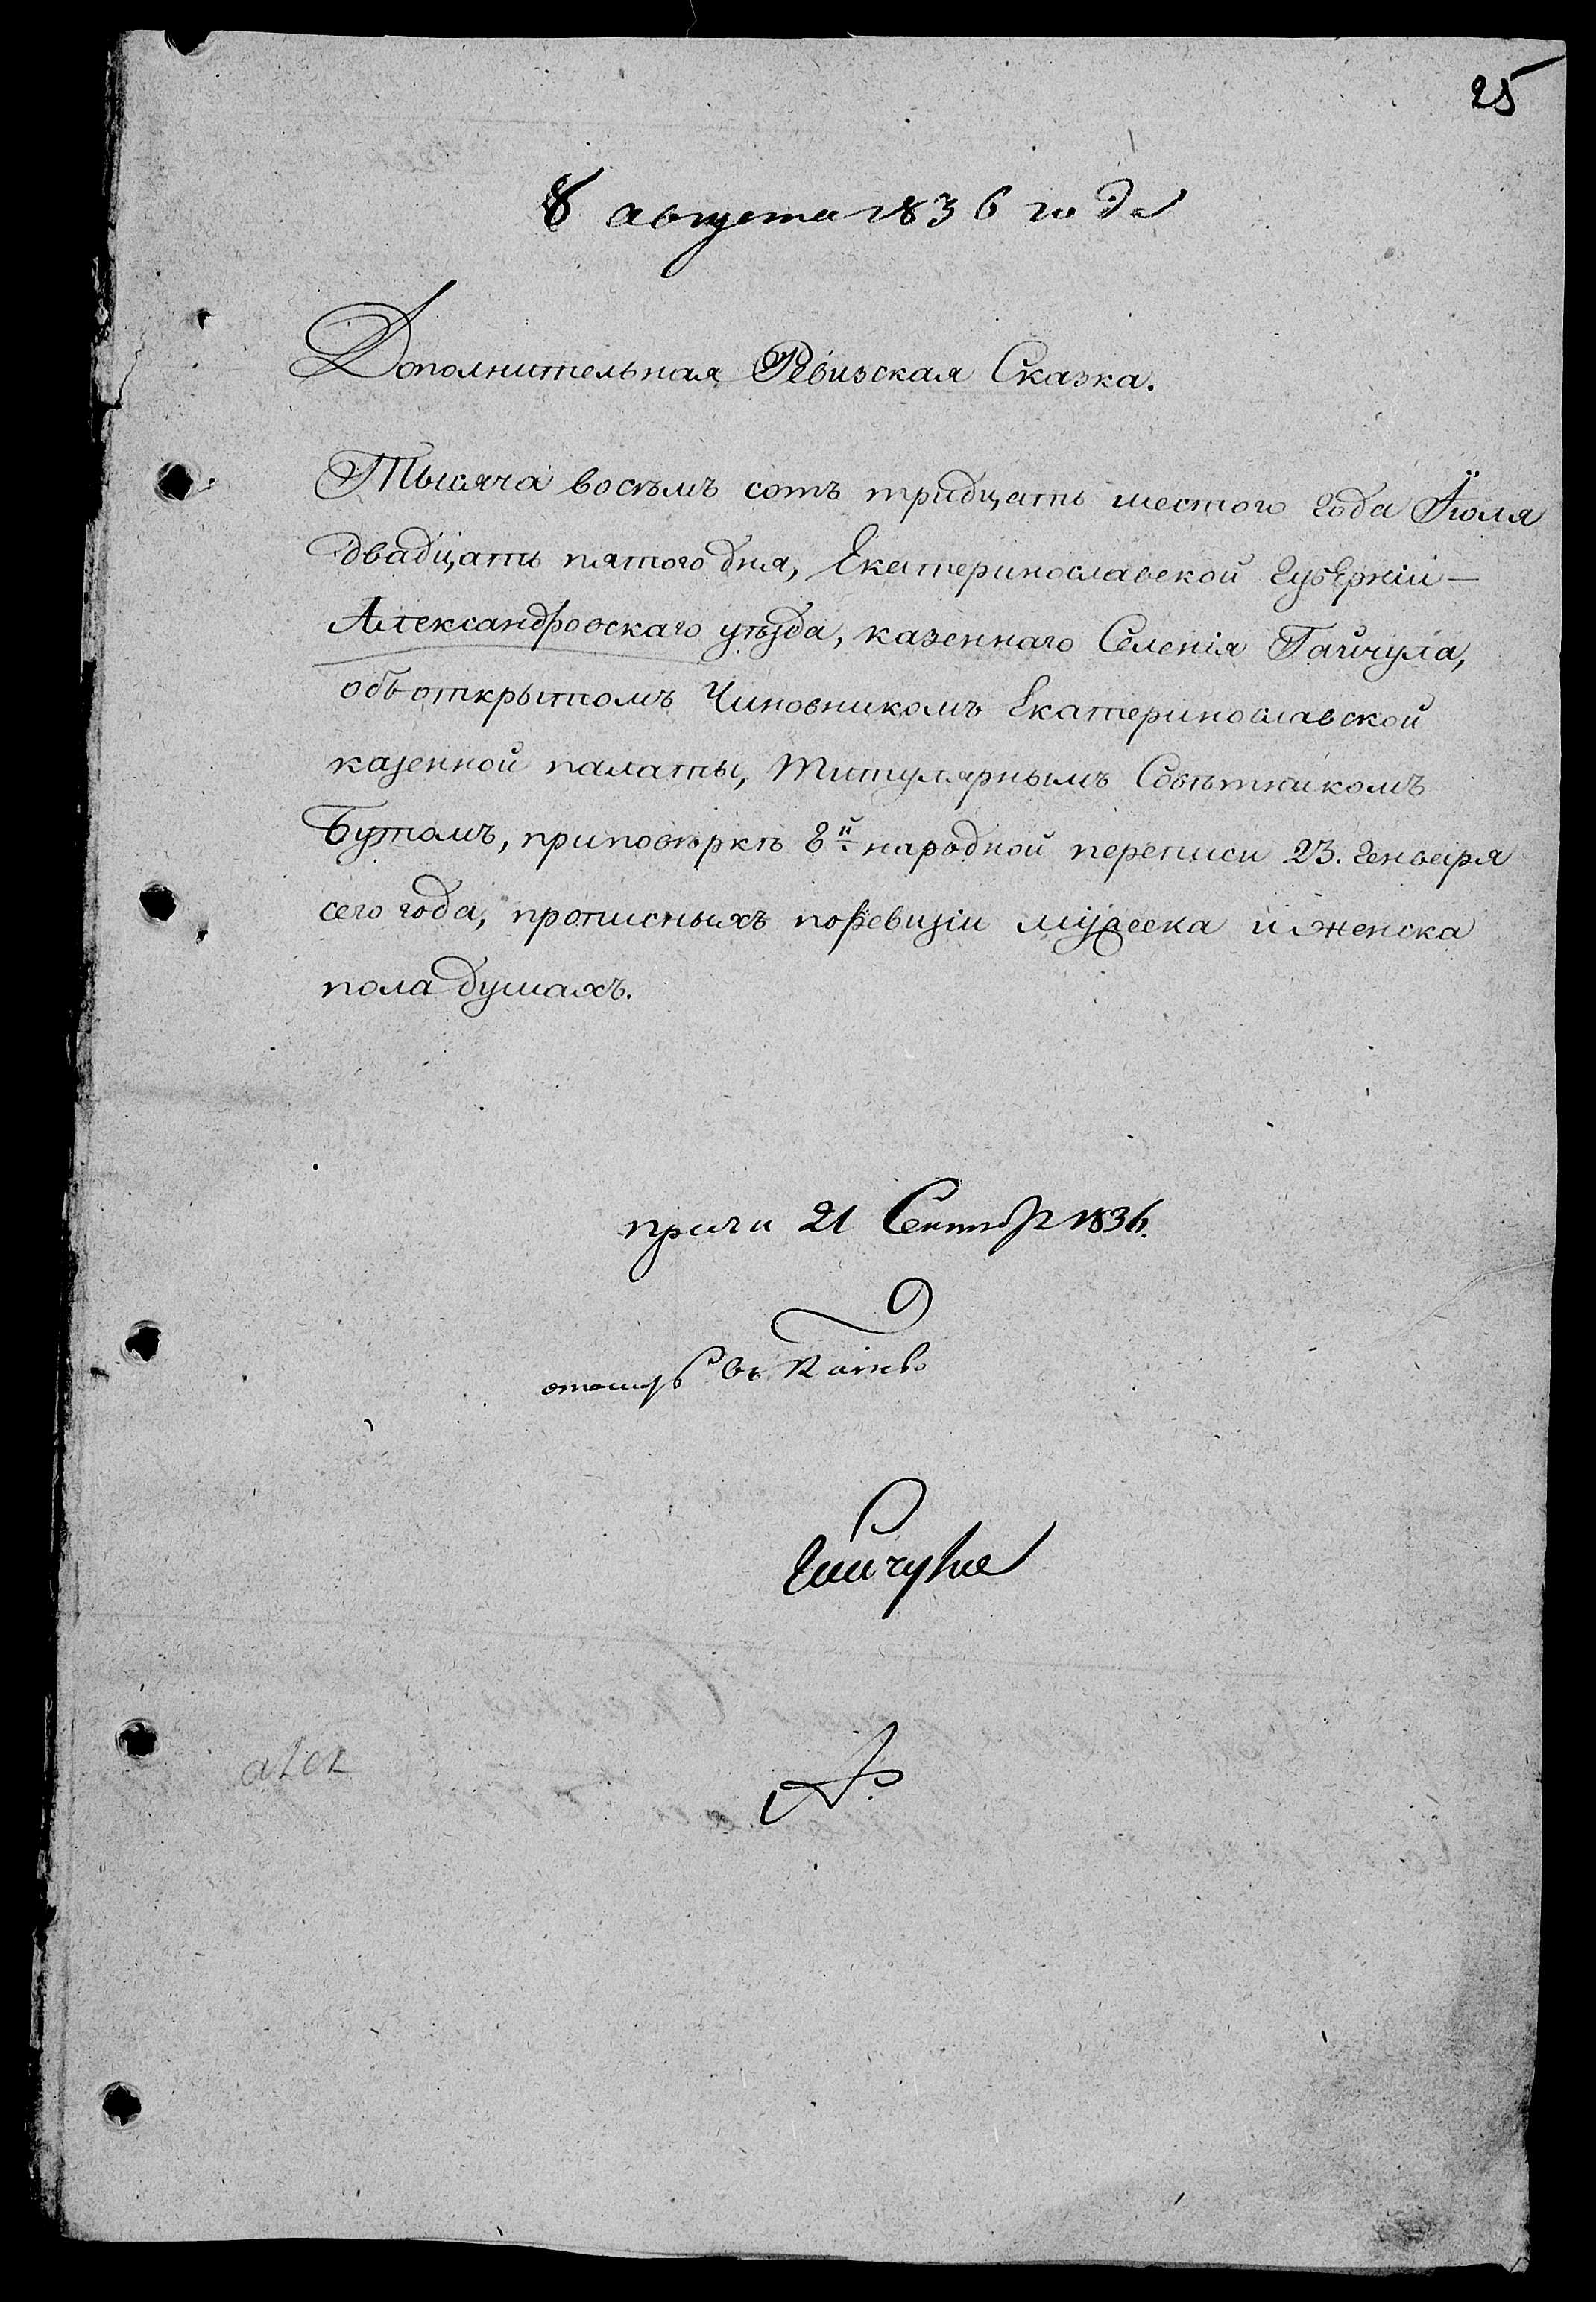 25
8 августа 1836 года
Дополнительная Ревизская Сказка.
Тысяча восемъ сотъ тридцать шестого года Іюля
двадцать пятого дня, Екатеринославской Губерніи —
Александровскаго уѣзда, казеннаго Селенія Гайчула,
объ открытомъ Чиновникомъ Екатеринославской
казенной палаты, Титулярнымъ Совѣтникомъ
Бутомъ, приповѣркѣ 8й народной переписи 23. Генваря
сего года, прописныхъ поревизіи мужеска и женска
пола душахъ.
21 Сентяб 1836.
въ
Гайчула